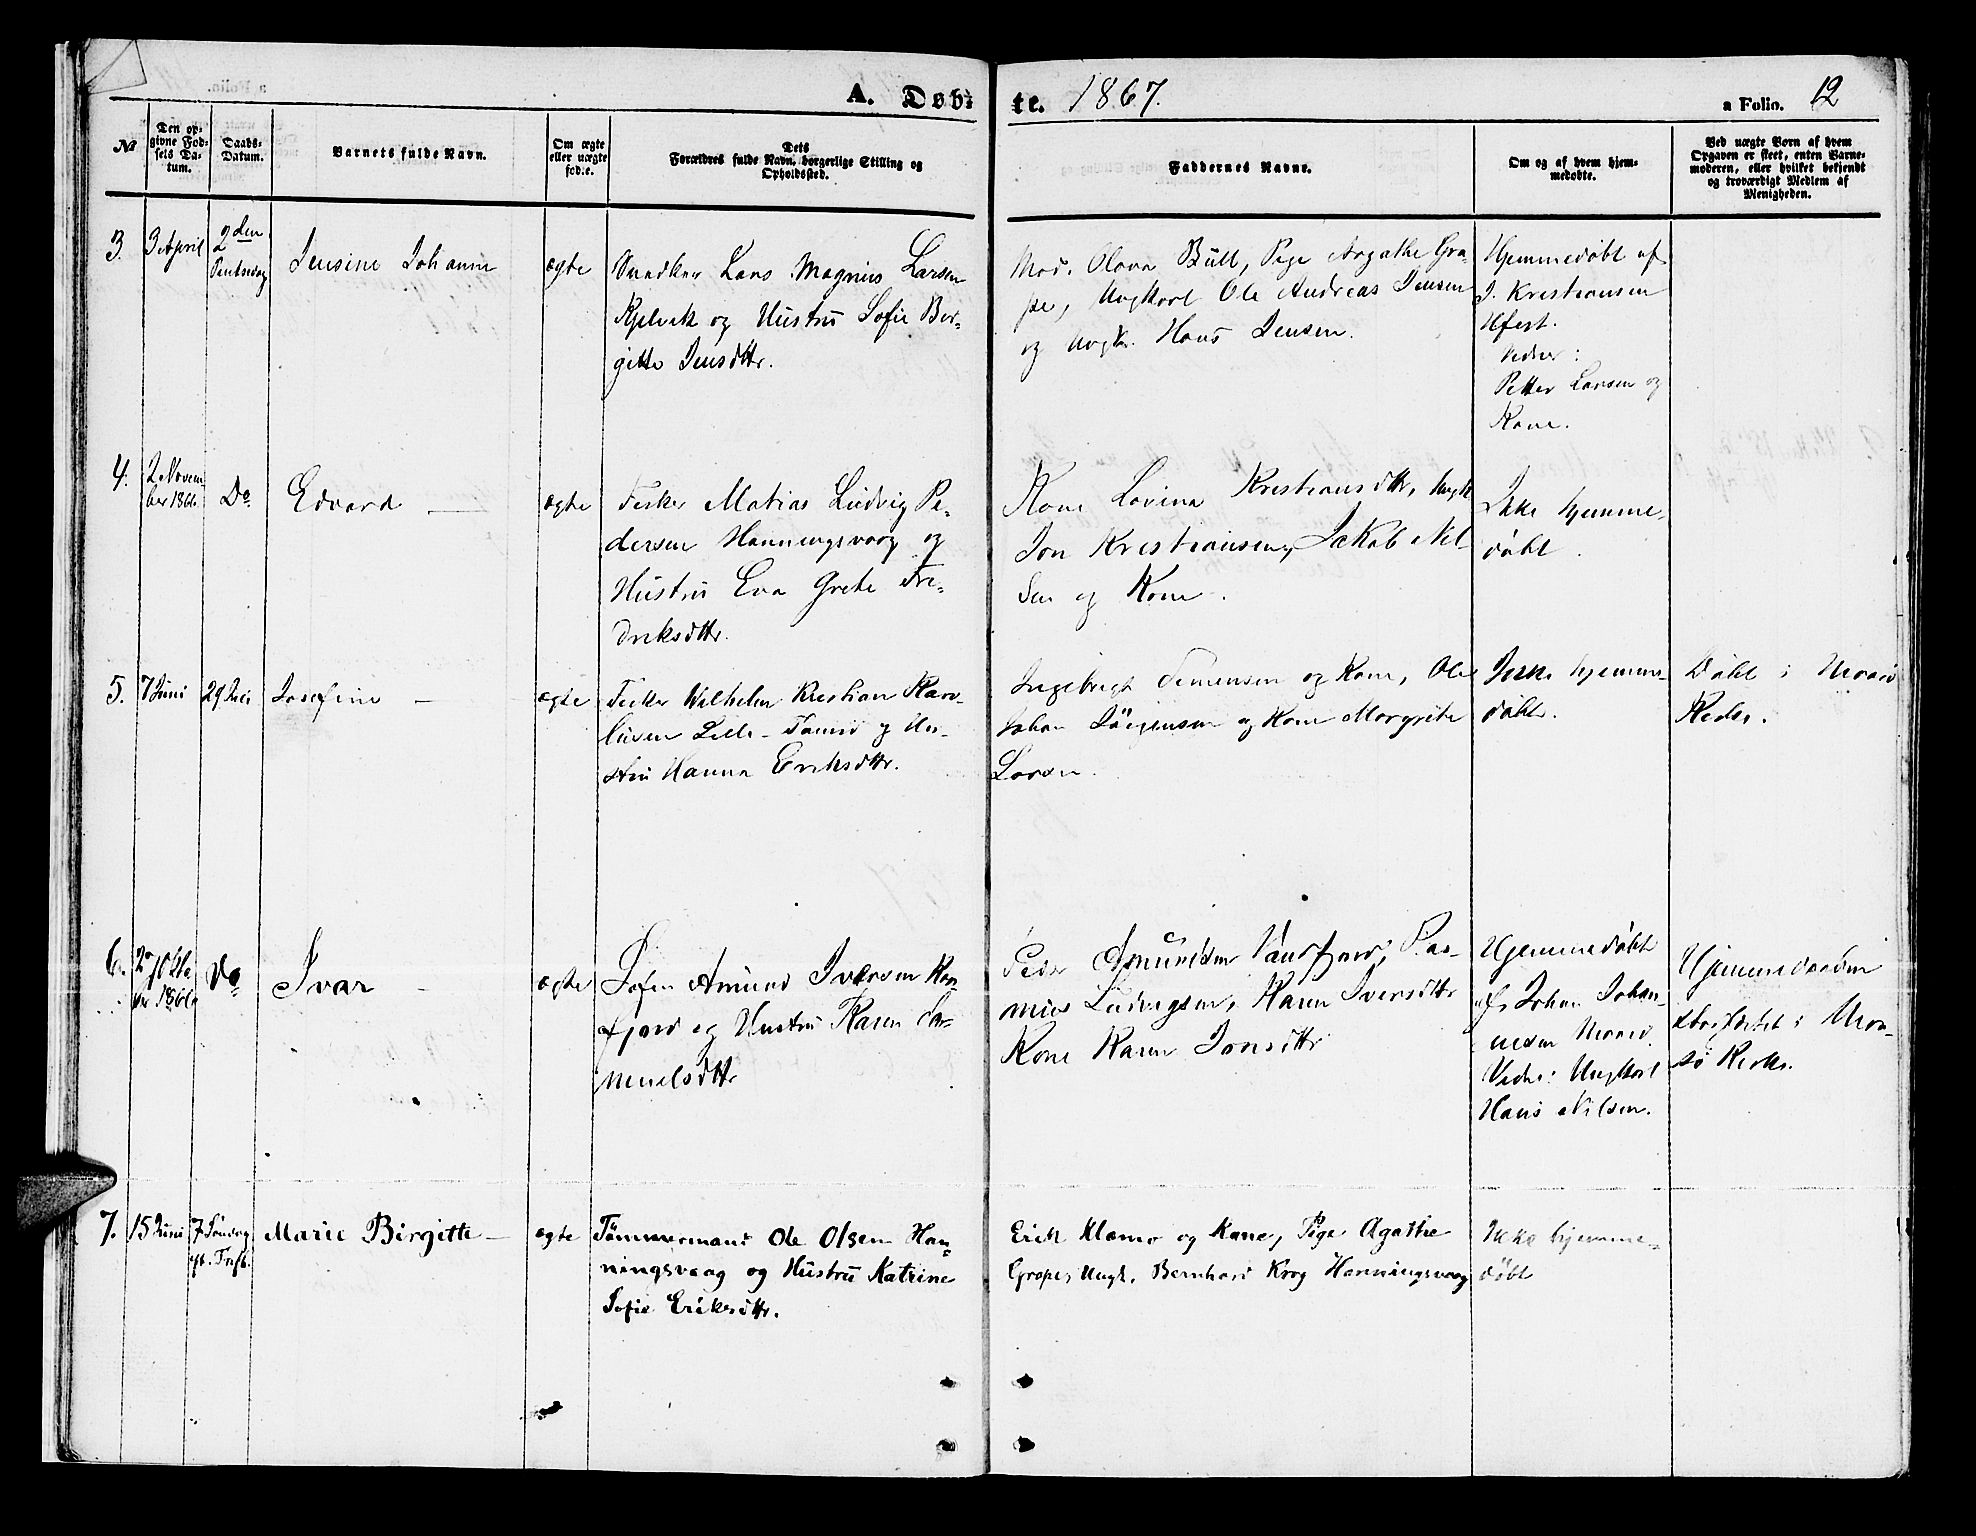 A. Døb- te. 1867. a Folio. 12
№
Den op-
givne Fød-
sels Da-
tum.
Daabs-
Datum.
Barnets fulde Navn.
Om ægte
eller uægte
fød.e.
Dets
Forældres fulde Navn, borgerlige Stilling og
Opholdssted.
Faddernes Navne.
Om og af hvem hjem-
medøbte.
Ved uægte Børn af hvem
Opgaven er skeet, enten Barne-
moderen, eller hvilket bekjendt
og troværdigt Medlem af
Menigheden.
3.
3 April
2den
Jensine Johanne
ægte
Snedker Lars Magnus Larsen
og Hustru Sofie Ber-
gitte Jensdttr.
Mad. Olava Büll, Pige Aagathe Gra-
pe, Ungkarl Ole Andreas Jensen
og Ungk. Hans Jensen.
Hjemmedøbt af
J. Kristiansen
Vidner:
Petter Larsen og
Kone.
4.
2 Novem-
ber 1866
Do
Edvard
ægte
Fisker Matias Ludvig Pe-
dersen Honningsvaag og
Hustru Eva Grete Fre-
driksdttr.
Kone Lovina Kristiansdttr, Ungk
Jon Kristiansen, Jakob Nil-
sen og Kone.
Ikke hjemme-
døbt.
5.
7 Juni
29 Juli
Josefine
ægte
Fisker Wilhelm Kristian Karo-
liusen Lille-Tamsø og Hu-
stru Hanna Eriksdttr.
Ingebrigt Simensen og Kone, Ole
Johan Jörgensen og Kone Margrete
Larsen.
Ikke hjemme-
døbt.
Døbt i
6.
27 Okto
ber 1866
Do
Ivar
ægte
Amund Iversen
fjord og Hustru Karen Sa-
muelsdttr
Peder Amundsen Ras-
mus Ludvigsen, Karen Iversdttr
Kone Karen Jonsdttr
Hjemmedøbt
af Johan Johan-
nesen
Vidne: Ungkarl
Hans Nilsen.
Hjemmedaaben
7.
15 Juni
7 Söndag
eft. Trefb.
Marie Birgitte
ægte
Tømmermand Ole Olsen Hon-
ningsvaag og Hustru Katrine
Sofie Eriksdttr.
Erik Klemo og Kone, Pige Agathe
Grape, Ungk. Bernhard Krog Honningsvaag
Ikke hjemme-
døbt